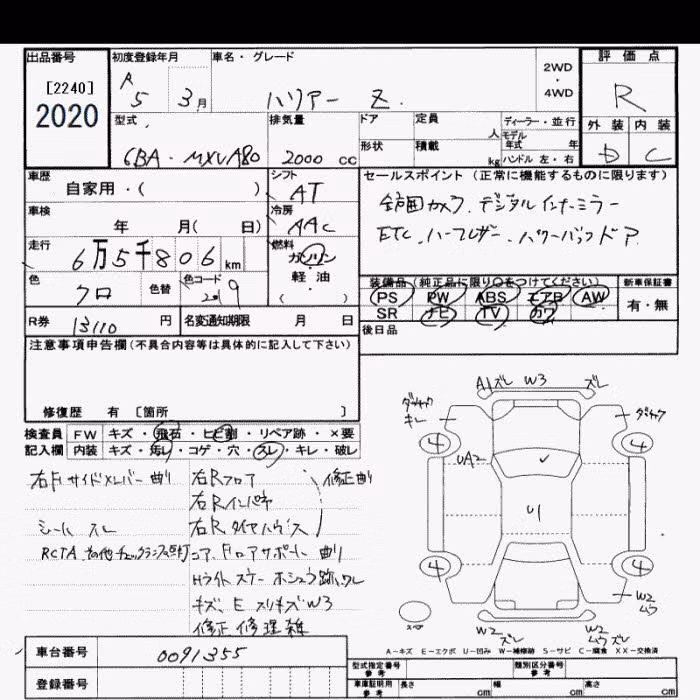 出品番号
[2240]
2020
初度登録年月
R 5 3月
車名・グレード
ハリアー Z.
2WD
・
4WD
評価点
R
外装 内装
D C
型式
6BA・MXUA80
排気量
2000 cc
ドア 定員
人
形状 積載
kg
ディーラー・並行
モデル
年式 年
ハンドル 左・右
車歴
自家用・( )
シフト
AT
セールスポイント (正常に機能するものに限ります)
全周囲カメラ、デジタルインナーミラー
ETC、ハーフレザー、パワーバックドア
車検
年 月( 日)
冷房
AAC
走行
6万5千806 km
燃料
ガソリン
軽・油
( )
色
クロ
色替
色コード
219
装備品 (純正品に限り○をつけてください)
PS PW ABS エアB AW
SR ナビ TV カワ
新車保証書
有・無
R券 13110 円
名変通知期限 月 日
後日品
注意事項申告欄(不具合内容等は具体的に記入して下さい)
修復歴 有 [箇所 ]
検査員 FW キズ・飛石・ヒビ割・リペア跡・×要
記入欄 内装 キズ・汚レ・コゲ・穴・スレ・キレ・破レ
右Fサイドメンバー曲り
右Rフロア
右Rインパネ
右Rタイヤハウス
修正曲り
シート スレ
RCTA、その他チェックランプ点灯
コア、Fロアサポート 曲り
Hライトステー ホシュウ跡、ワレ
キズ、E スリキズW3
修正 修理 雑
A1ズレ W3 ズレ
ダキャク
キレ
ダキャク
4 4
UA2
U1
4 4
W2
ムラ
スペア
W2
ズレ
W2
ムラズレ
A-キズ E-エクボ U-凹み W-補修跡 S-サビ C-腐食 XX-交換済
車台番号 0091355
登録番号
型式指定番号
参考
類別区分番号
参考
車庫証明用
参考
長さ cm 幅 cm 高さ cm